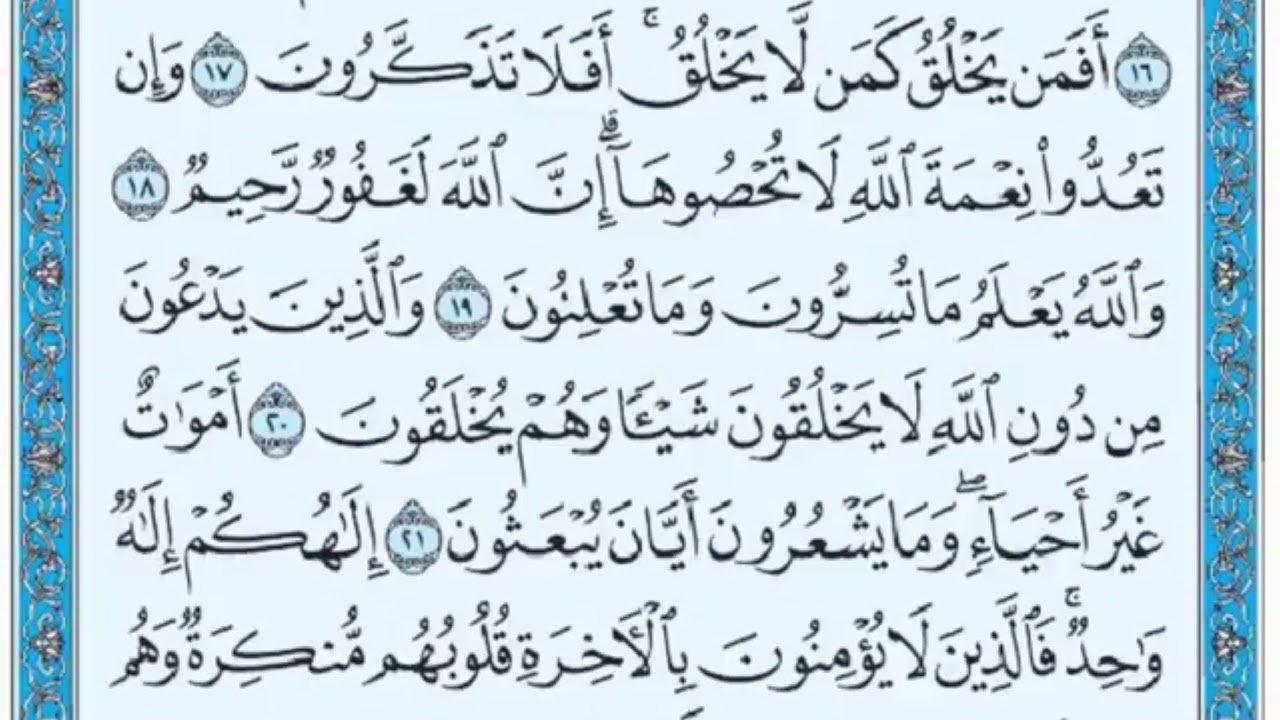 ١٦ أَفَمَن يَخْلُقُ كَمَن لَّا يَخْلُقُ ۚ أَفَلَا تَذَكَّرُونَ ١٧ وَإِن
تَعُدُّوا۟ نِعْمَةَ ٱللَّهِ لَا تُحْصُوهَآ ۗ إِنَّ ٱللَّهَ لَغَفُورٌ رَّحِيمٌ ١٨
وَٱللَّهُ يَعْلَمُ مَا تُسِرُّونَ وَمَا تُعْلِنُونَ ١٩ وَٱلَّذِينَ يَدْعُونَ
مِن دُونِ ٱللَّهِ لَا يَخْلُقُونَ شَيْـًٔا وَهُمْ يُخْلَقُونَ ٢٠ أَمْوَٰتٌ
غَيْرُ أَحْيَآءٍ ۖ وَمَا يَشْعُرُونَ أَيَّانَ يُبْعَثُونَ ٢١ إِلَـٰهُكُمْ إِلَـٰهٌ
وَٰحِدٌ ۚ فَٱلَّذِينَ لَا يُؤْمِنُونَ بِٱلْـَٔاخِرَةِ قُلُوبُهُم مُّنكِرَةٌ وَهُم